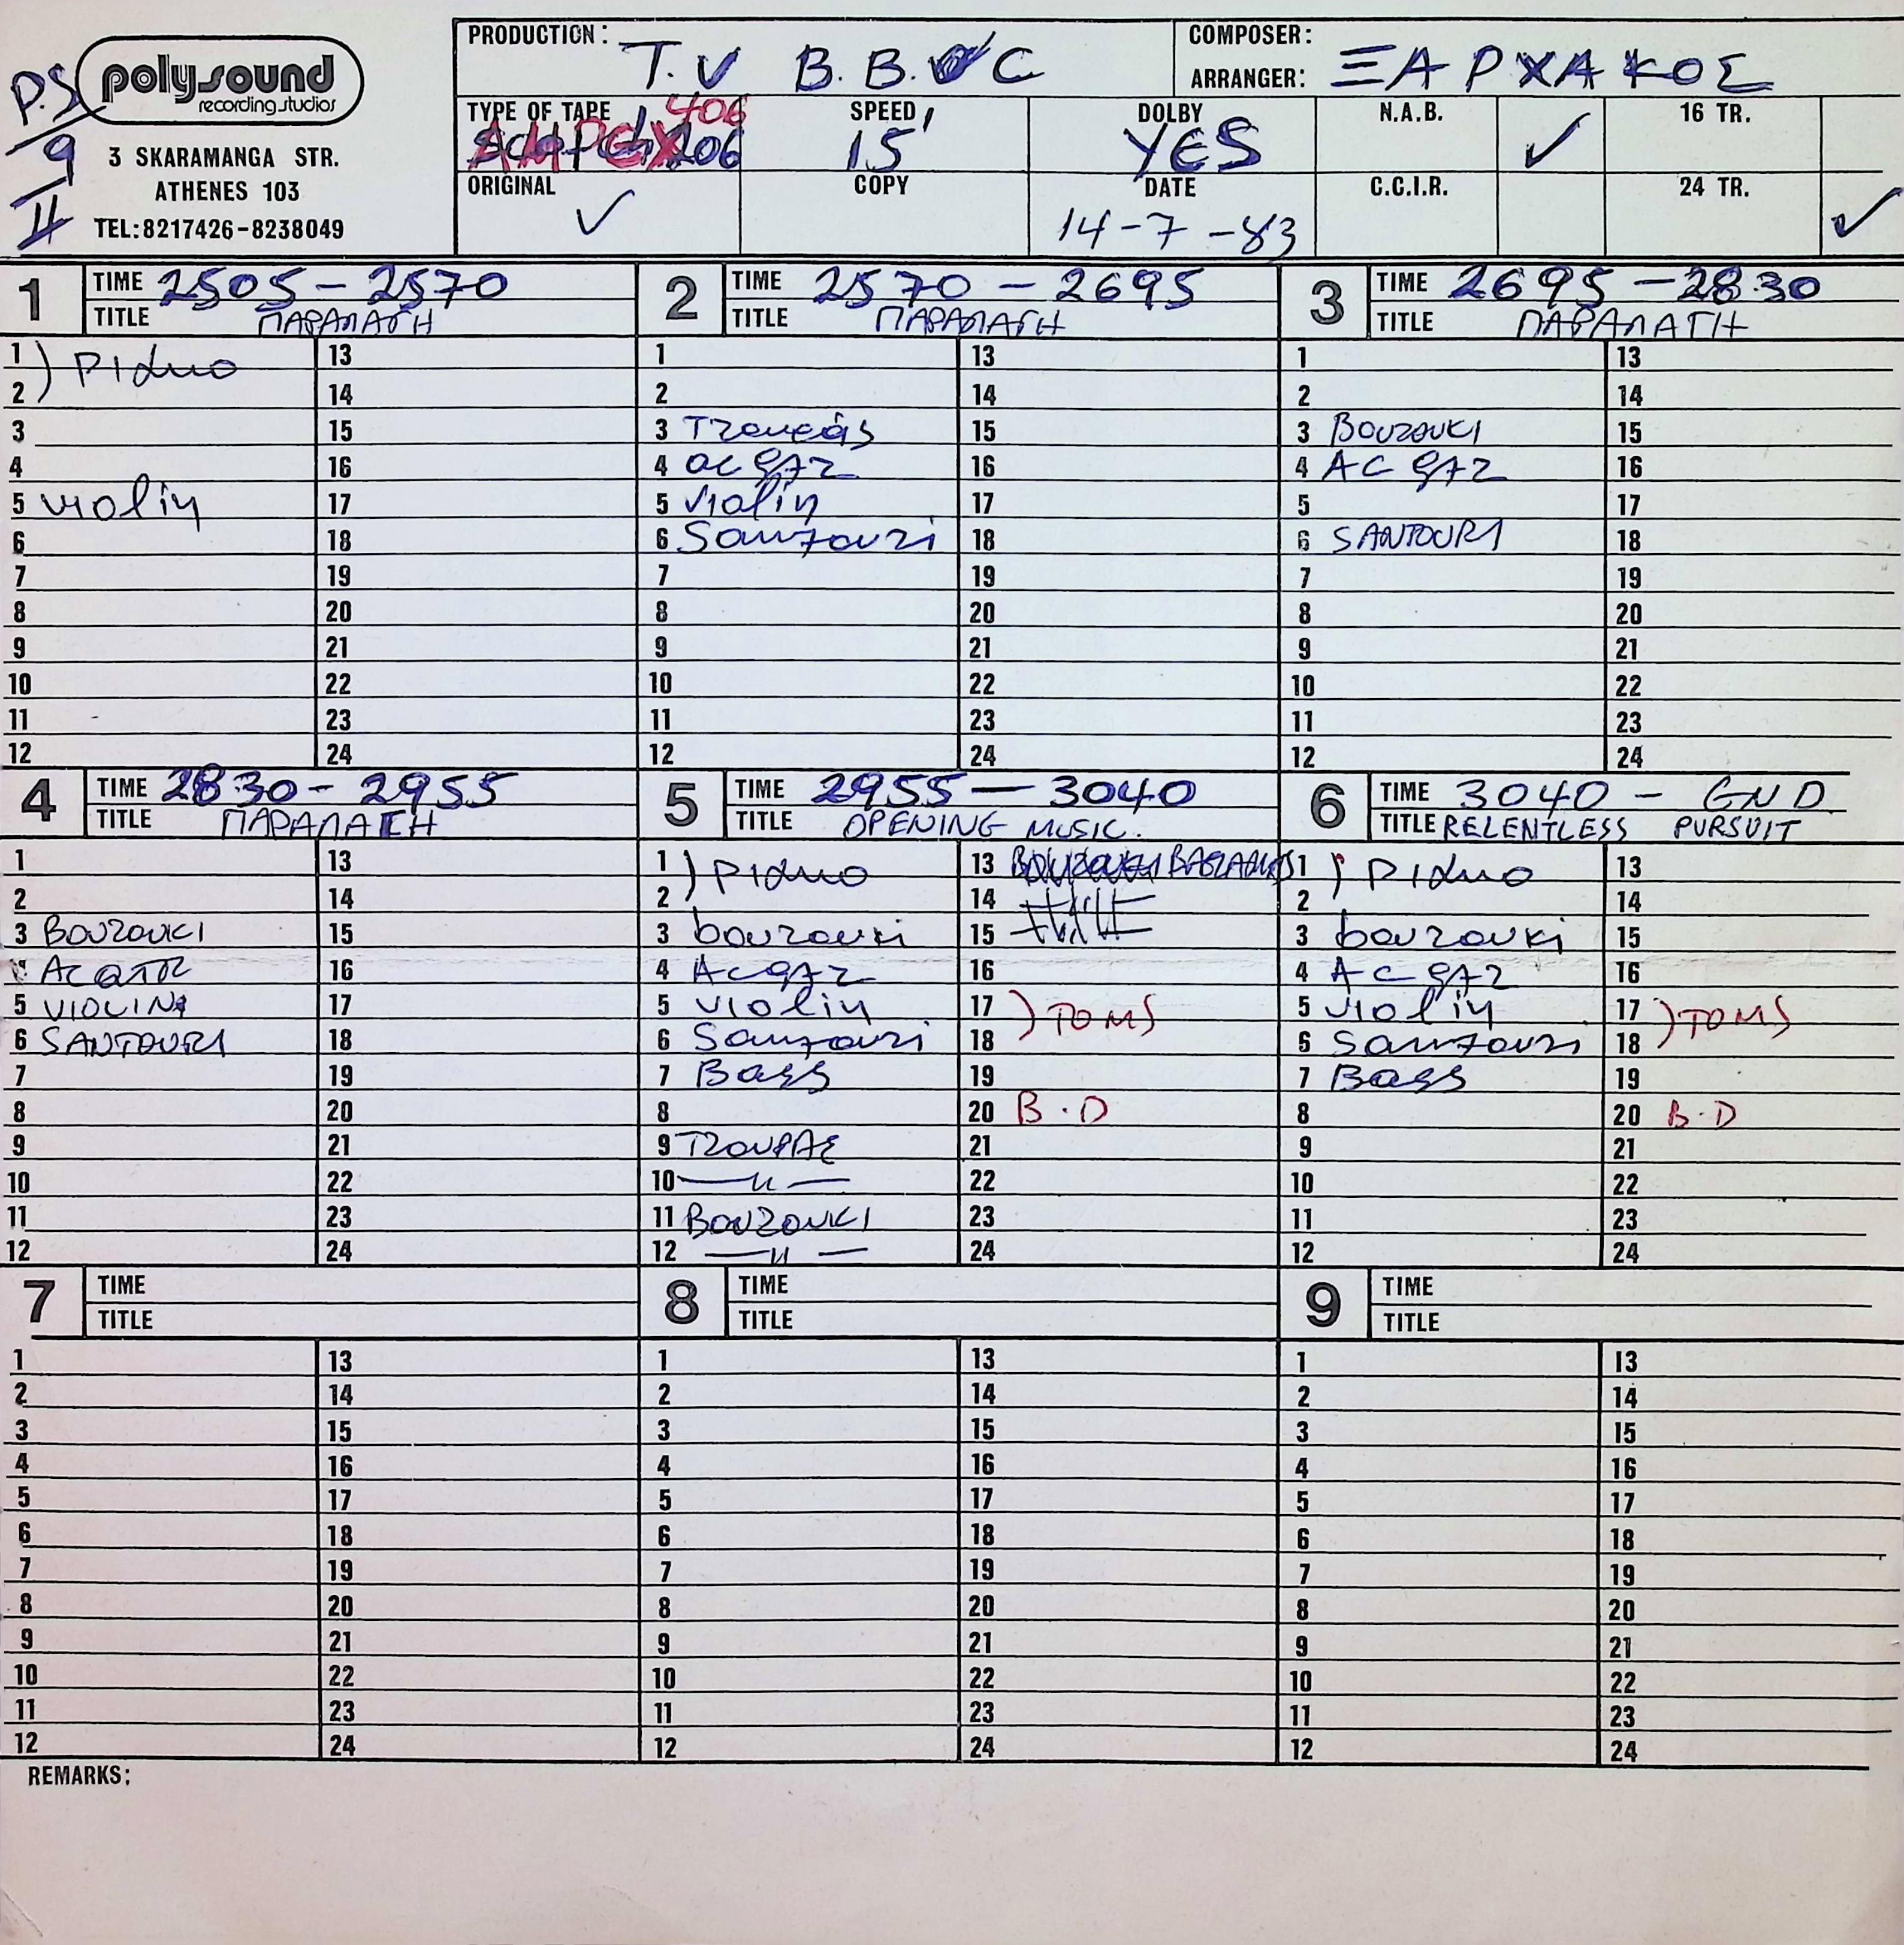 P.S
9
II
polysound
recording studios
3 SKARAMANGA STR.
ATHENES 103
TEL:8217426-8238049
PRODUCTION: T.V B.B.C
COMPOSER:
ARRANGER: ΞΑΡΧΑΚΟΣ
TYPE OF TAPE AMPEX 406
SPEED 15
DOLBY YES
N.A.B. ✓
16 TR.
ORIGINAL ✓
COPY
DATE 14-7-83
C.C.I.R.
24 TR. ✓
1 TIME 2505-2570
TITLE ΠΑΡΑΛΑΓΗ
1 ) Piano 13
2 14
3 15
4 16
5 violin 17
6 18
7 19
8 20
9 21
10 22
11 23
12 24
2 TIME 2570-2695
TITLE ΠΑΡΑΛΑΓΗ
1 13
2 14
3 Τζουράς 15
4 ac gtz 16
5 violin 17
6 Santouri 18
7 19
8 20
9 21
10 22
11 23
12 24
3 TIME 2695-2830
TITLE ΠΑΡΑΛΑΓΗ
1 13
2 14
3 BOUZOUKI 15
4 AC gtz 16
5 17
6 SANTOURI 18
7 19
8 20
9 21
10 22
11 23
12 24
4 TIME 2830-2955
TITLE ΠΑΡΑΛΑΓΗ
1 13
2 14
3 BOUZOUKI 15
AC GTR 16
5 VIOLIN 17
6 SANTOURI 18
7 19
8 20
9 21
10 22
11 23
12 24
5 TIME 2955-3040
TITLE OPENING MUSIC.
1 ) Piano 13
2 14
3 bouzouki 15
4 Ac gtz 16
5 violin 17 ) TOMS
6 Santouri 18
7 Bass 19
8 20 B.D
9 ΤΖΟΥΡΑΣ 21
10 —〃— 22
11 BOUZOUKI 23
12 —〃— 24
6 TIME 3040 - END
TITLE RELENTLESS PURSUIT
1 ) Piano 13
2 14
3 bouzouki 15
4 AC gtz 16
5 violin 17 ) TOMS
6 Santouri 18
7 Bass 19
8 20 B.D
9 21
10 22
11 23
12 24
7 TIME
TITLE
1 13
2 14
3 15
4 16
5 17
6 18
7 19
8 20
9 21
10 22
11 23
12 24
8 TIME
TITLE
1 13
2 14
3 15
4 16
5 17
6 18
7 19
8 20
9 21
10 22
11 23
12 24
9 TIME
TITLE
1 13
2 14
3 15
4 16
5 17
6 18
7 19
8 20
9 21
10 22
11 23
12 24
REMARKS: